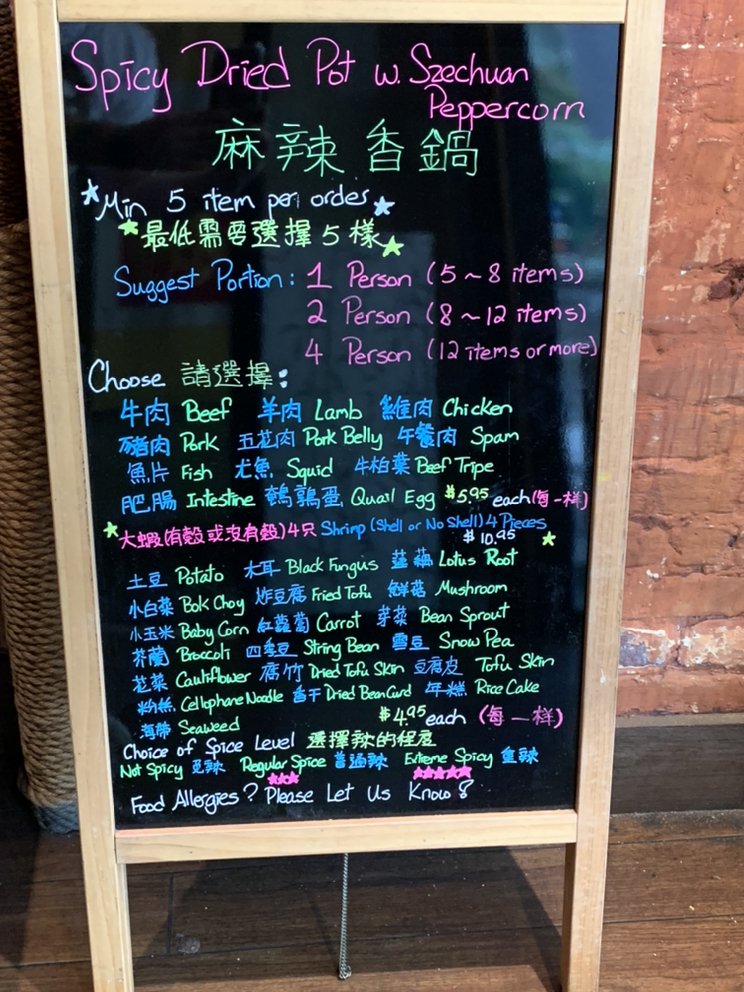 Spicy Dried Pot w. Szechuan
Peppercorn
麻辣香鍋
Min 5 item per order
最低需要選擇5樣
Suggest Portion: 1 Person (5~8 items)
2 Person (8~12 items)
4 Person (12 items or more)
Choose 請選擇:
牛肉 Beef 羊肉 Lamb 雞肉 Chicken
豬肉 Pork 五花肉 Pork Belly 午餐肉 Spam
魚片 Fish 尤魚 Squid 牛柏葉 Beef Tripe
肥腸 Intestine 鵪鶉蛋 Quail Egg $5.95 each (每一样)
大蝦(有殼或沒有殼)4只 Shrimp (Shell or No Shell) 4 Pieces
$10.95
土豆 Potato 木耳 Black Fungus 蓮藕 Lotus Root
小白菜 Bok Choy 炸豆腐 Fried Tofu 鮮菇 Mushroom
小玉米 Baby Corn 紅蘿蔔 Carrot 芽菜 Bean Sprout
芥蘭 Broccoli 四季豆 String Bean 雪豆 Snow Pea
花菜 Cauliflower 腐竹 Dried Tofu Skin 豆腐皮 Tofu Skin
粉絲 Cellophane Noodle 香干 Dried Bean Curd 年糕 Rice Cake
海帶 Seaweed $4.95 each (每一样)
Choice of Spice Level 選擇辣的程度
Not Spicy 免辣 Regular Spice 普通辣 Extreme Spicy 重辣
Food Allergies? Please Let Us Know?